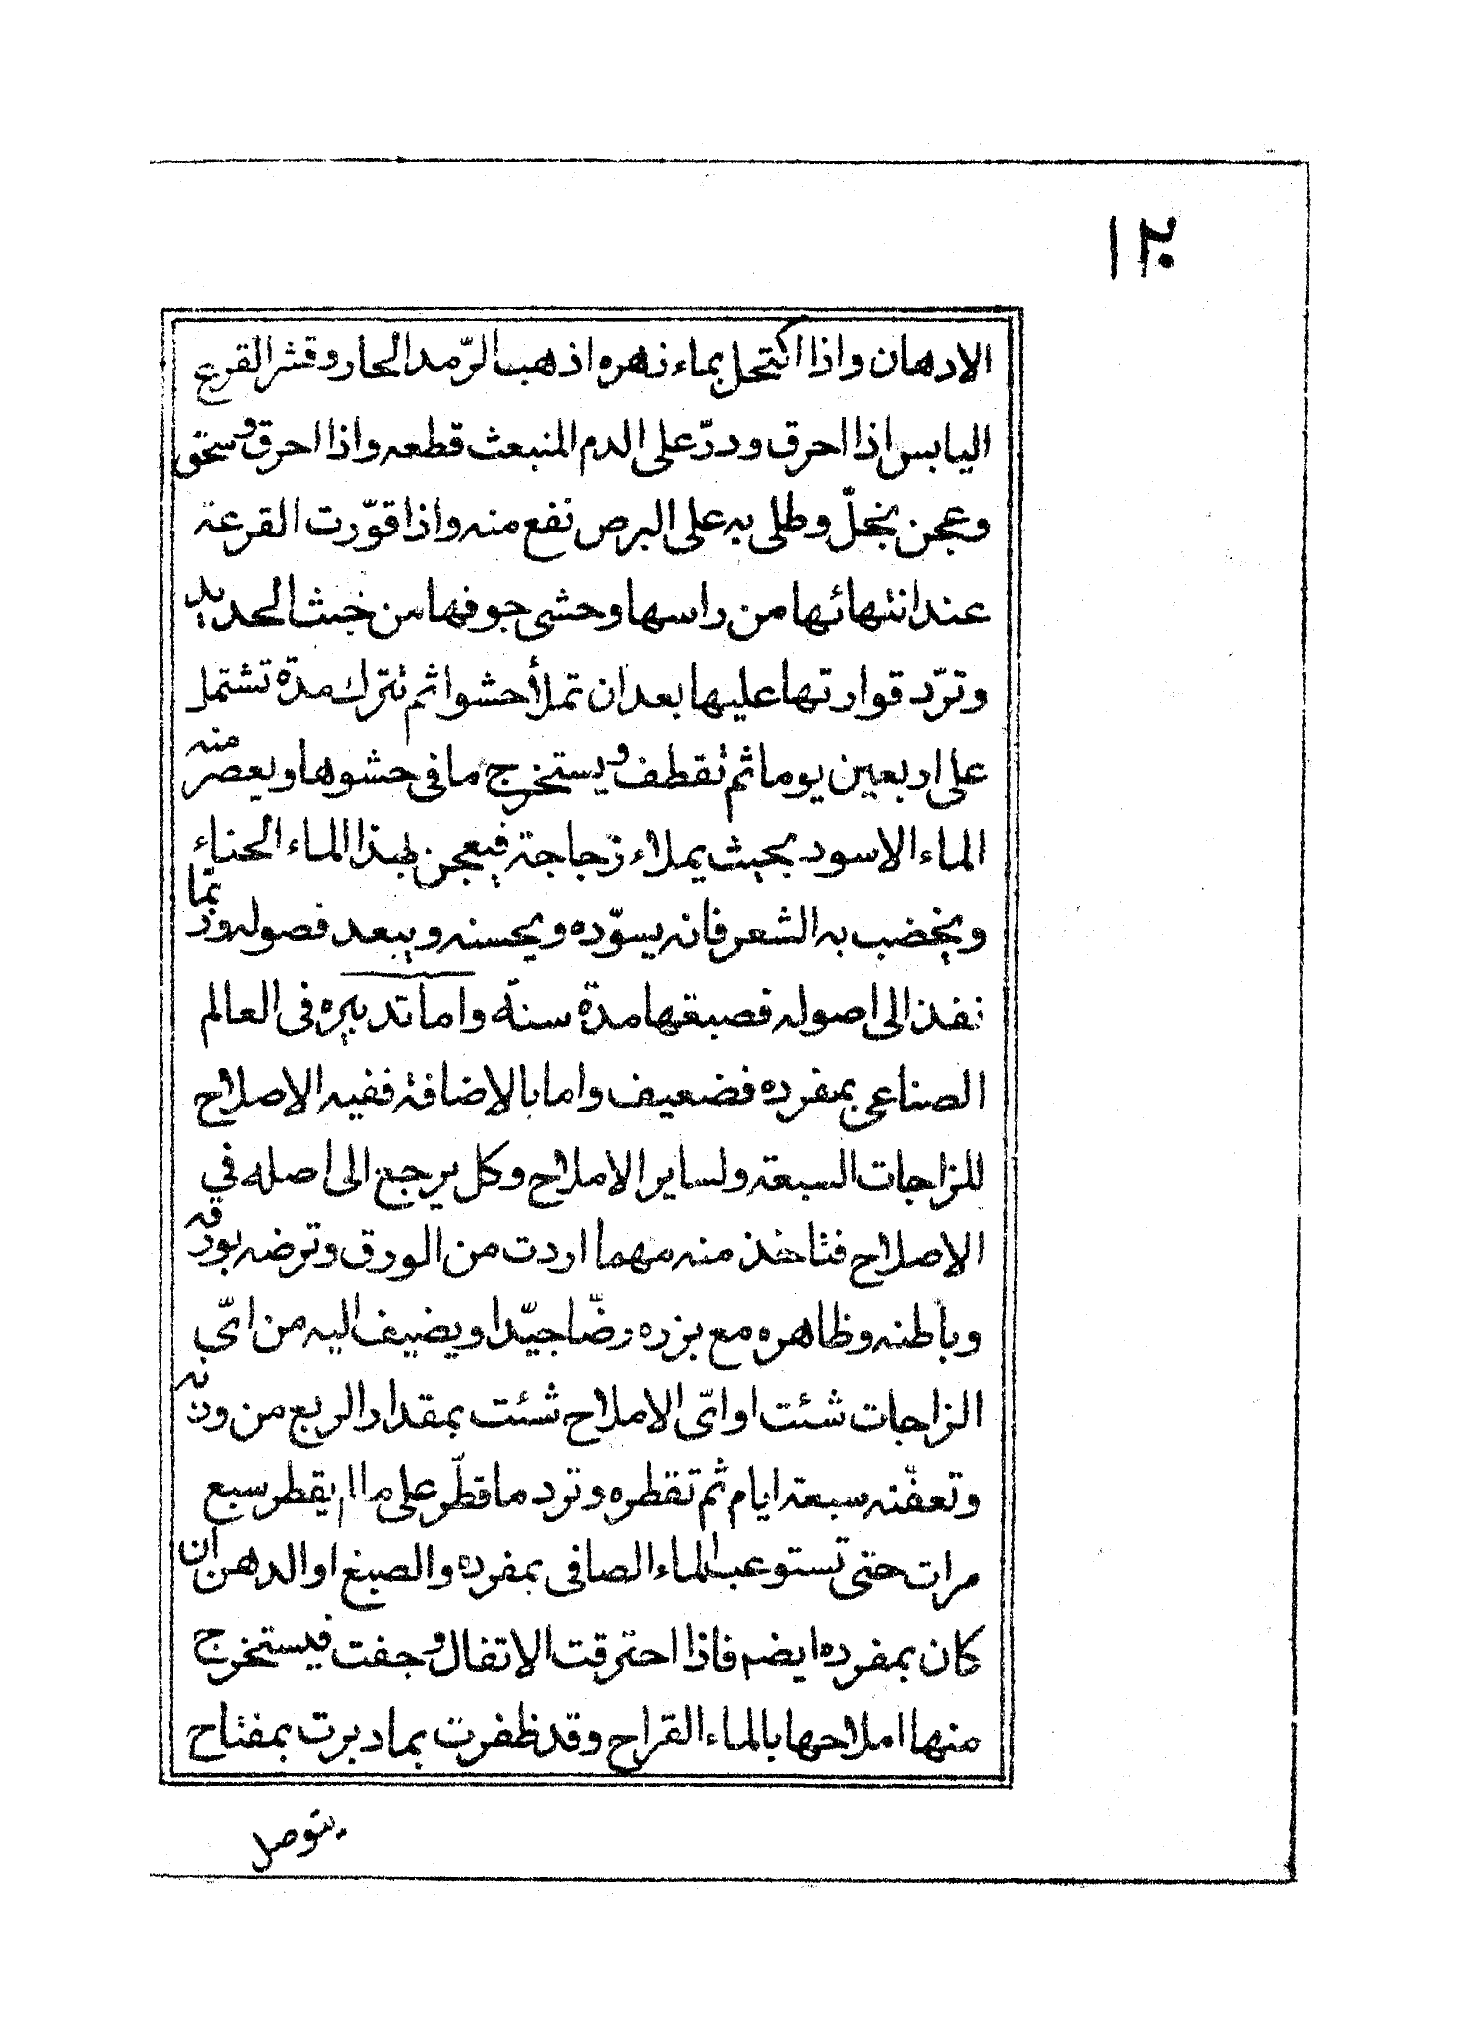 ١٢٠
الادهان واذا اكتحل بماء زهره اذهب الرّمد الحار وقشر القرع
اليابس اذا احرق ودرّ على الدم المنبعث قطعه واذا احرق وسحق
وعجن بخلّ وطلى به على البرص نفع منه واذا قوّرت القرعة
عند انتهائها من راسها وحشى جوفها من خبث الحديد
وترّد قوارتها عليها بعد ان تملأ حشوا ثم تترك مدة تشتمل
على اربعين يوما ثم تقطف ويستخرج ما فى حشوها ويعصر منه
الماء الاسود بحيث يملاء زجاجة فيعجن لهذا الماء الحناء
ويخضب به الشعر فانه يسوّده ويحسنه ويبعد فصوله وربّما
نفذ الى اصوله فصبغها مدة سنة واما تدبيره فى العالم
الصناعى بمفرده فضعيف واما بالاضافة ففيه الاصلاح
للزاجات السبعة ولساير الاملاح وكل يرجع الى اصله في
الاصلاح فتاخذ منه مهما اردت من الورق وترضه بورقه
وباطنه وظاهره مع بزره رضّا جيّدا ويضيف اليه من اىّ
الزاجات شئت او اىّ الاملاح شئت بمقدار الربع من وزنه
وتعفّنه سبعة ايام ثم تقطره وترد ما قطّر على ما لم يقطر سبع
مرات حتى تستوعب الماء الصافى بمفرده والصبغ او الدهن ان
كان بمفرده ايضه فاذا احترقت الاتفال وجفت فيستخرج
منها املاحها بالماء القراح وقد ظفرت بما دبرت بمفتاح
يتوصل